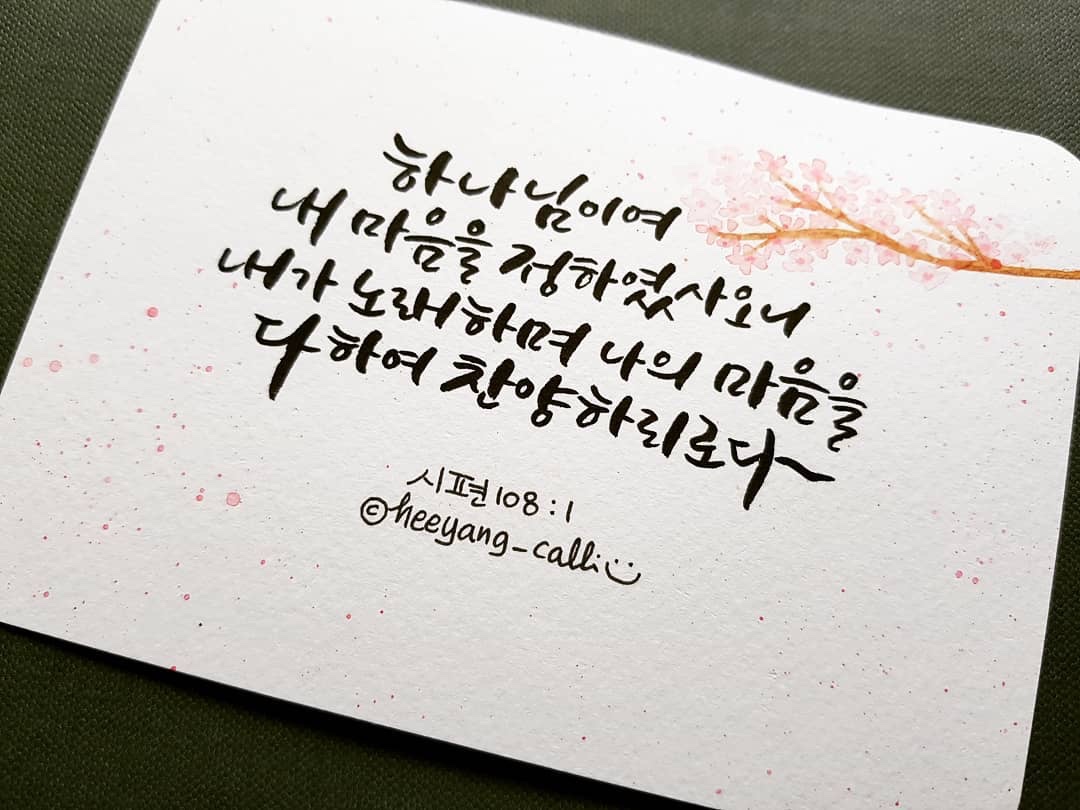 하나님이여
내 마음을 정하였사오니
내가 노래하며 나의 마음을
다하여 찬양하리로다~
시편 108:1
©heeyang_calli